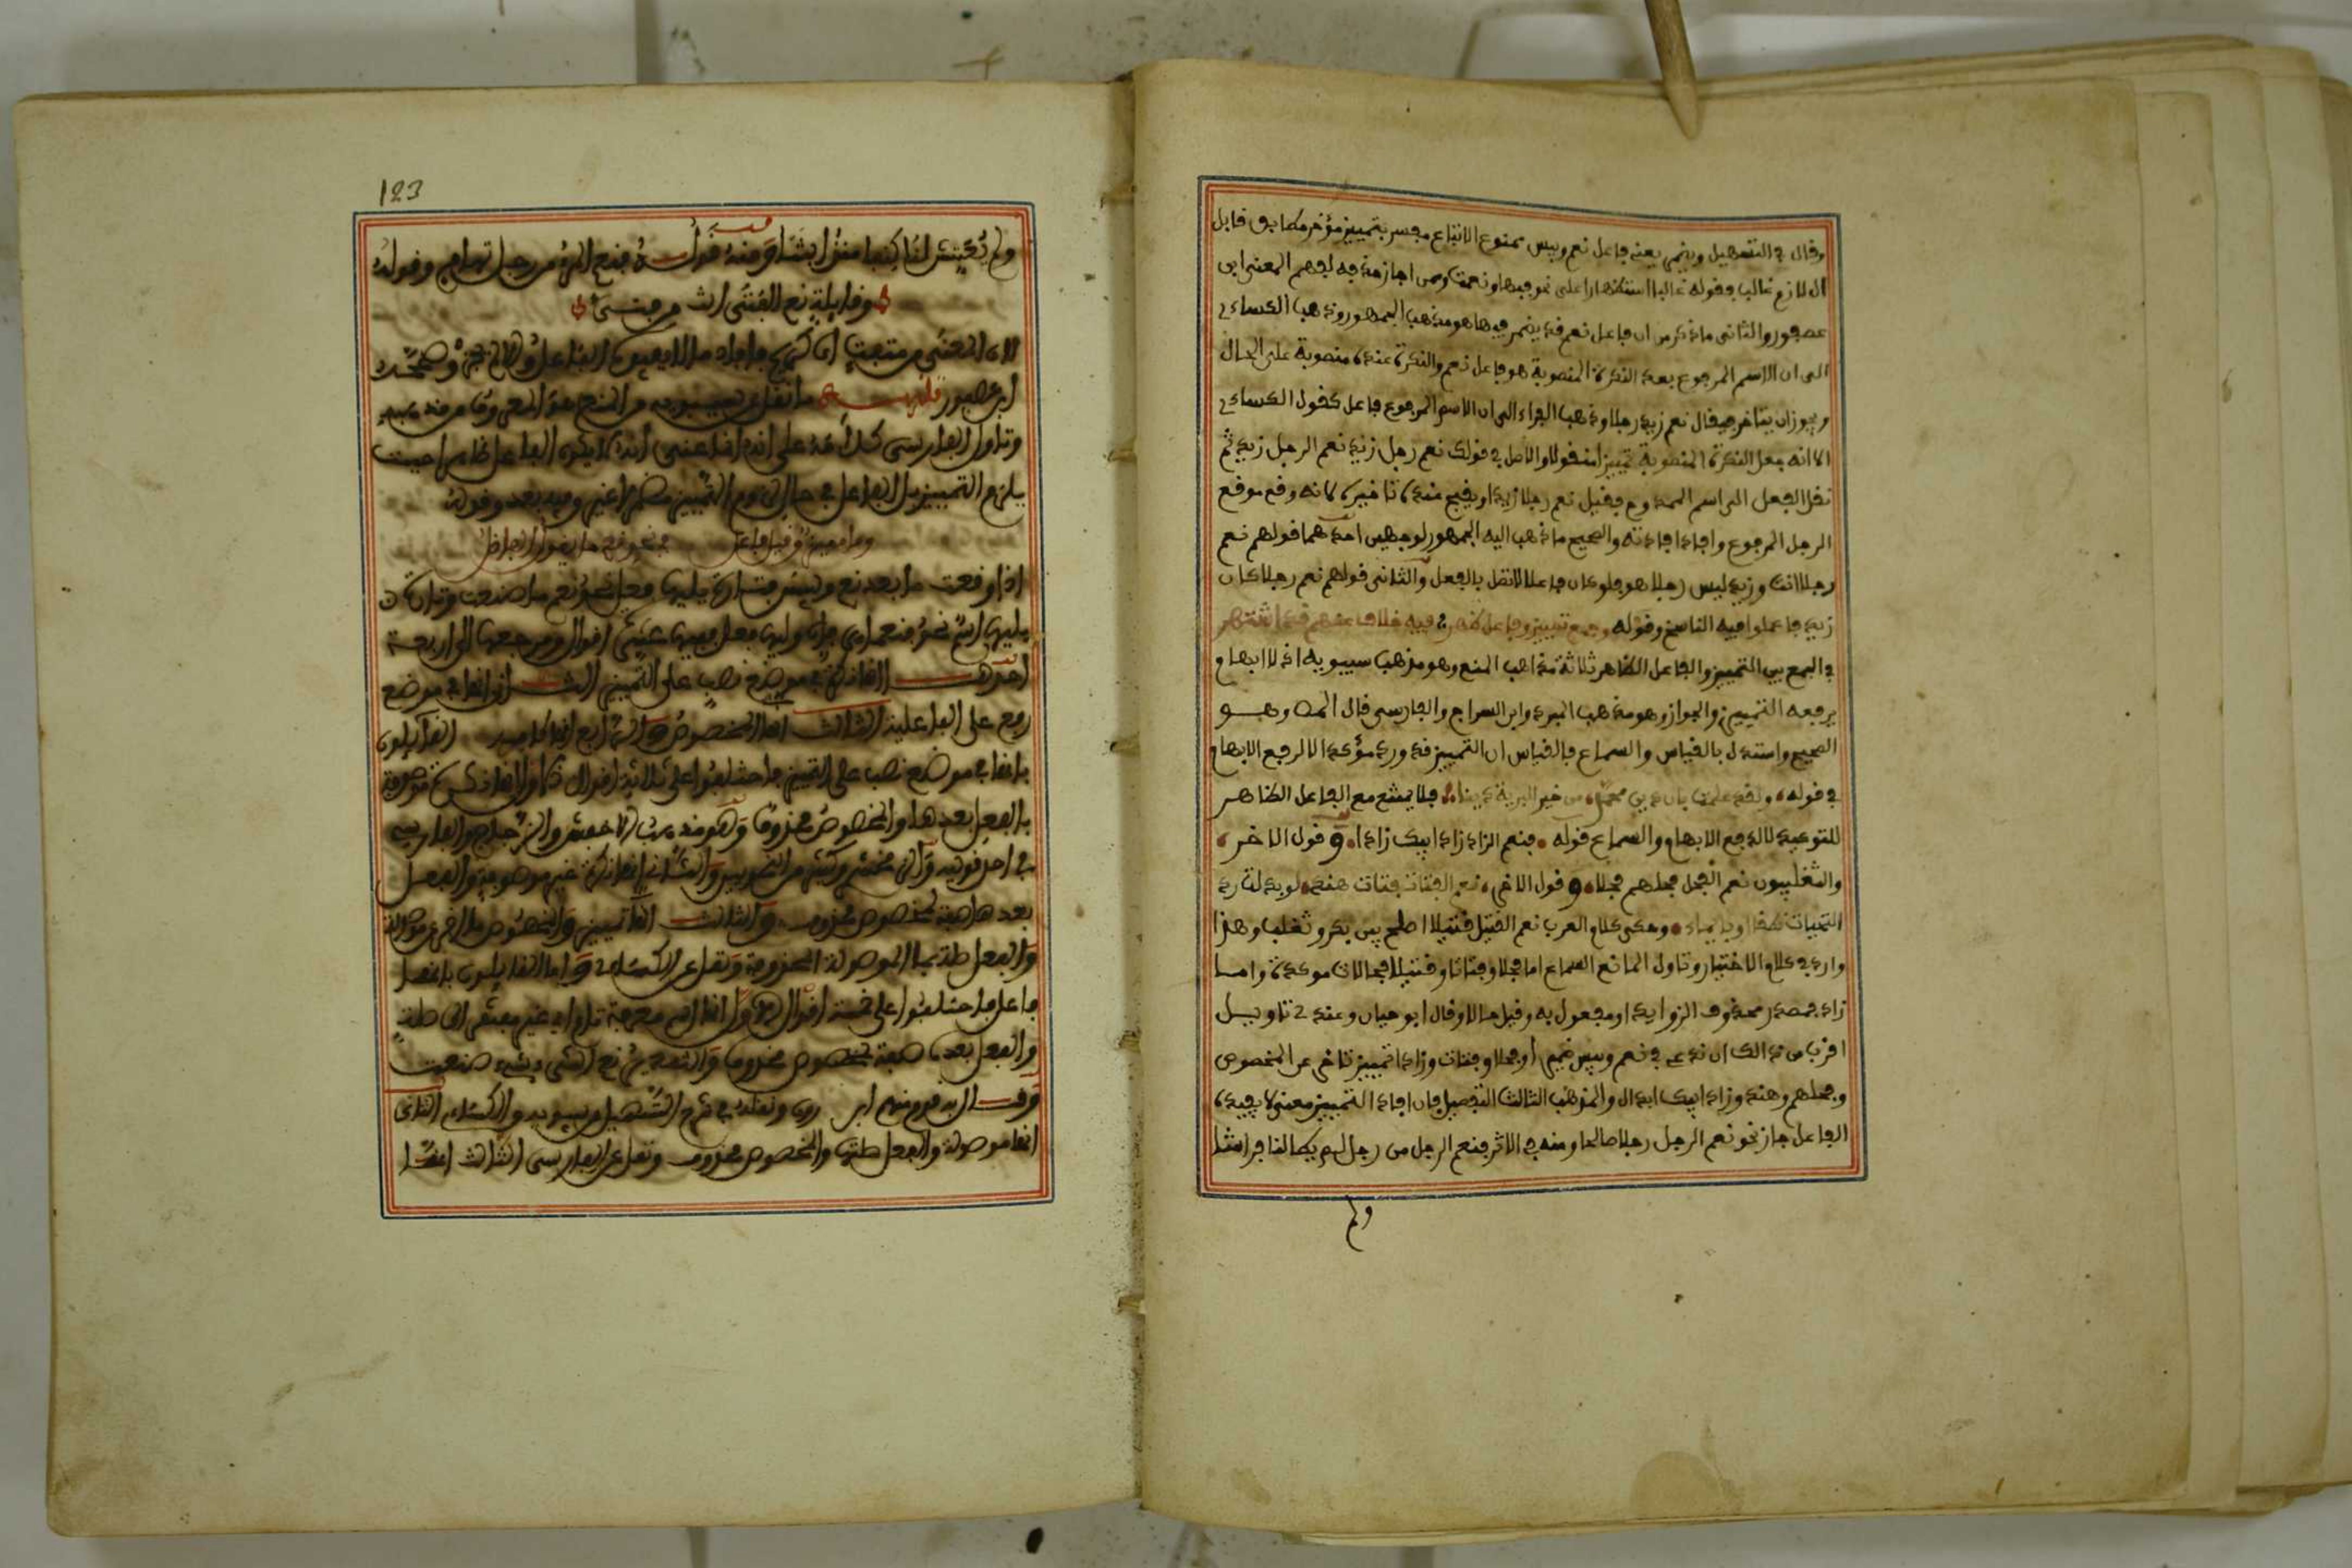 وقال في التسهيل ويضمر يعنه فاعل نعم وبيس ممنوع الاتباع مفسر بتمييز مؤخر مطابق قابل
ال لازم غالبا فقوله غالبا استظهارا على نحو فبها ونعمت ومن اجاز حذفه لفهم المعنى ابن
عصفور والثاني ما ذكر من ان فاعل نعم قد يضمر فيها هو مذهب الجمهور وذهب الكساءي
الى ان الاسم المرجوع بعد النكرة المنصوبة هو فاعل نعم والنكرة عنده منصوبة على الحال
ويجوز ان يتاخر فيقال نعم زيد رجلا وذهب الفراء الى ان الاسم المرجوع فاعل كقول الكساءي
الا انه جعل النكرة المنصوبة تمييزا منقولا والاصل في قولك نعم رجل زيد نعم الرجل زيد ثم
نقل الفعل الى اسم الممدوح فقيل نعم رجلا زيد ويقبح عنده تاخيره لانه وقع موقع
الرجل المرجوع وافاد افادته والصحيح ما ذهب اليه الجمهور لوجهين احدهما قولهم نعم
رجلا انت وزيد ليس رجلا هو فلو كان فاعلا لاتصل بالفعل والثاني قولهم نعم رجلا كان
زيد فاعملوا فيه الناسخ وقوله وجمع تمييز وفاعل ظهر فيه خلاف عنهم قد اشتهر
في الجمع بين التمييز والفاعل الظاهر ثلاثة مذاهب المنع وهو مذهب سيبويه اذ لا ابهام
يرفعه التمييز والجواز وهو مذهب المبرد وابن السراج والفارسي قال المص وهو
الصحيح واستدل بالقياس والسماع فالقياس ان التمييز قد ورد مؤكدا لا لرفع الابهام
في قوله ولقد علمت بان دين محمد من خير البرية دينا فلا يمتنع مع الفاعل الظاهر
للتوكيد لا لدفع الابهام والسماع قوله فنعم الزاد زاد ابيك زادا وقول الاخر
والتغلبيون نعم الفحل فحلهم فحلا وقول الاخر نعم الفتات فتات هند لو بذلت رد
التحيات نطقا او بايماء وحكى كلام العرب نعم القتيل قتيلا اصلح بين بكر وتغلب وهذا
وارد في كلام الاختيار وتاول المانع السماع اما فحلا وفتاتا وقتيلا فحالات موكدة واما
زاد فمصدر محذوف الزوايد او مفعول به وقيل حالا وقال ابو حيان وعندي تاويل
اقرب من ذالك ان ندعي في نعم وبيس ضمير او فحلا وفتات وزادا تمييز تاخر عن المخصوص
وفحلهم وهند وزاد ابيك ابدال والمذهب الثالث التفصيل فان افاد التمييز معنى لا يفيده
الفاعل جاز نحو نعم الرجل رجلا صالحا ومنه في الاثر فنعم الرجل من رجل لم يطا لنا فراشا
ولم
123
ولم يفتش لنا كنفا منذ اتينا ومنه قوله فنعم المرء من رجل تهامي وقوله
وقايلة نعم الفتى انت من فتى
لان المعنى من متفت اي كريم فافاد ما لا يفيده الفاعل وصححه
ابن عصفور ما نقل عن سيبويه من المنع هو المعروف من مذهبه
وتاول الفارسي كلامه على انه انما عنى انه لا يكون الفاعل ظاهرا حيث
يلزم التمييز بل الفاعل في حال لزوم التمييز مضمر لا غير وفيه بعد وقوله
وما مميز وقيل فاعل في نحو نعم ما يقول الفاضل
اذا وقعت ما بعد نعم وبيس فتارة يليها فعل نحو نعم ما صنعت وتارة
يليها اسم نحو فنعما هي فان وليها فعل ففيها عشرة اقوال ومرجعها الى اربعة
احدها انها نكرة في موضع نصب على التمييز الثاني انها في موضع
رفع على الفاعلية الثالث انها المخصوص الرابع انها كافة القايلون
بانها في موضع نصب على التمييز فاختلفوا على ثلاثة اقوال الاول انها نكرة موصوفة
بالفعل بعدها والمخصوص محذوف وهو مذهب الاخفش والزجاج والفارسي
في احد قوليه والزمخشري وكثير من النحويين والثاني انها نكرة غير موصوفة والفعل
بعدها صفة لمخصوص محذوف والثالث انها تمييز والمخصوص ما اخرى موصولة
والفعل صلة لما الموصولة المحذوفة ونقل عن الكساءي واما القايلون بانها
فاعل فاختلفوا على خمسة اقوال الاول انها اسم معرفة تام اي غير مفتقر الى صلة
والفعل بعدها صفة لمخصوص محذوف والتقدير نعم الشيء شيء صنعت
وقال به قوم منهم ابن خروف ونقله في شرح التسهيل عن سيبويه والكساءي الثاني
انها موصولة والفعل صلتها والمخصوص محذوف ونقل عن الفارسي الثالث انها